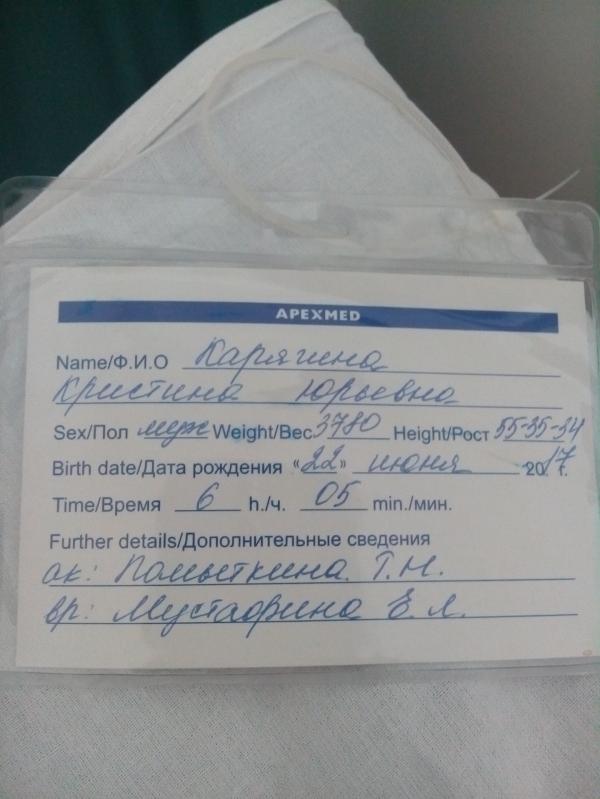 APEXMED
Name/Ф.И.О Карягина
Кристина Юрьевна
Sex/Пол муж Weight/Вес 3780 Height/Рост 55-35-34
Birth date/Дата рождения «22» июня 2017г.
Time/Время 6 h./ч. 05 min./мин.
Further details/Дополнительные сведения
ак: Помыткина Т.Н.
вр: Мустафина Е.Л.